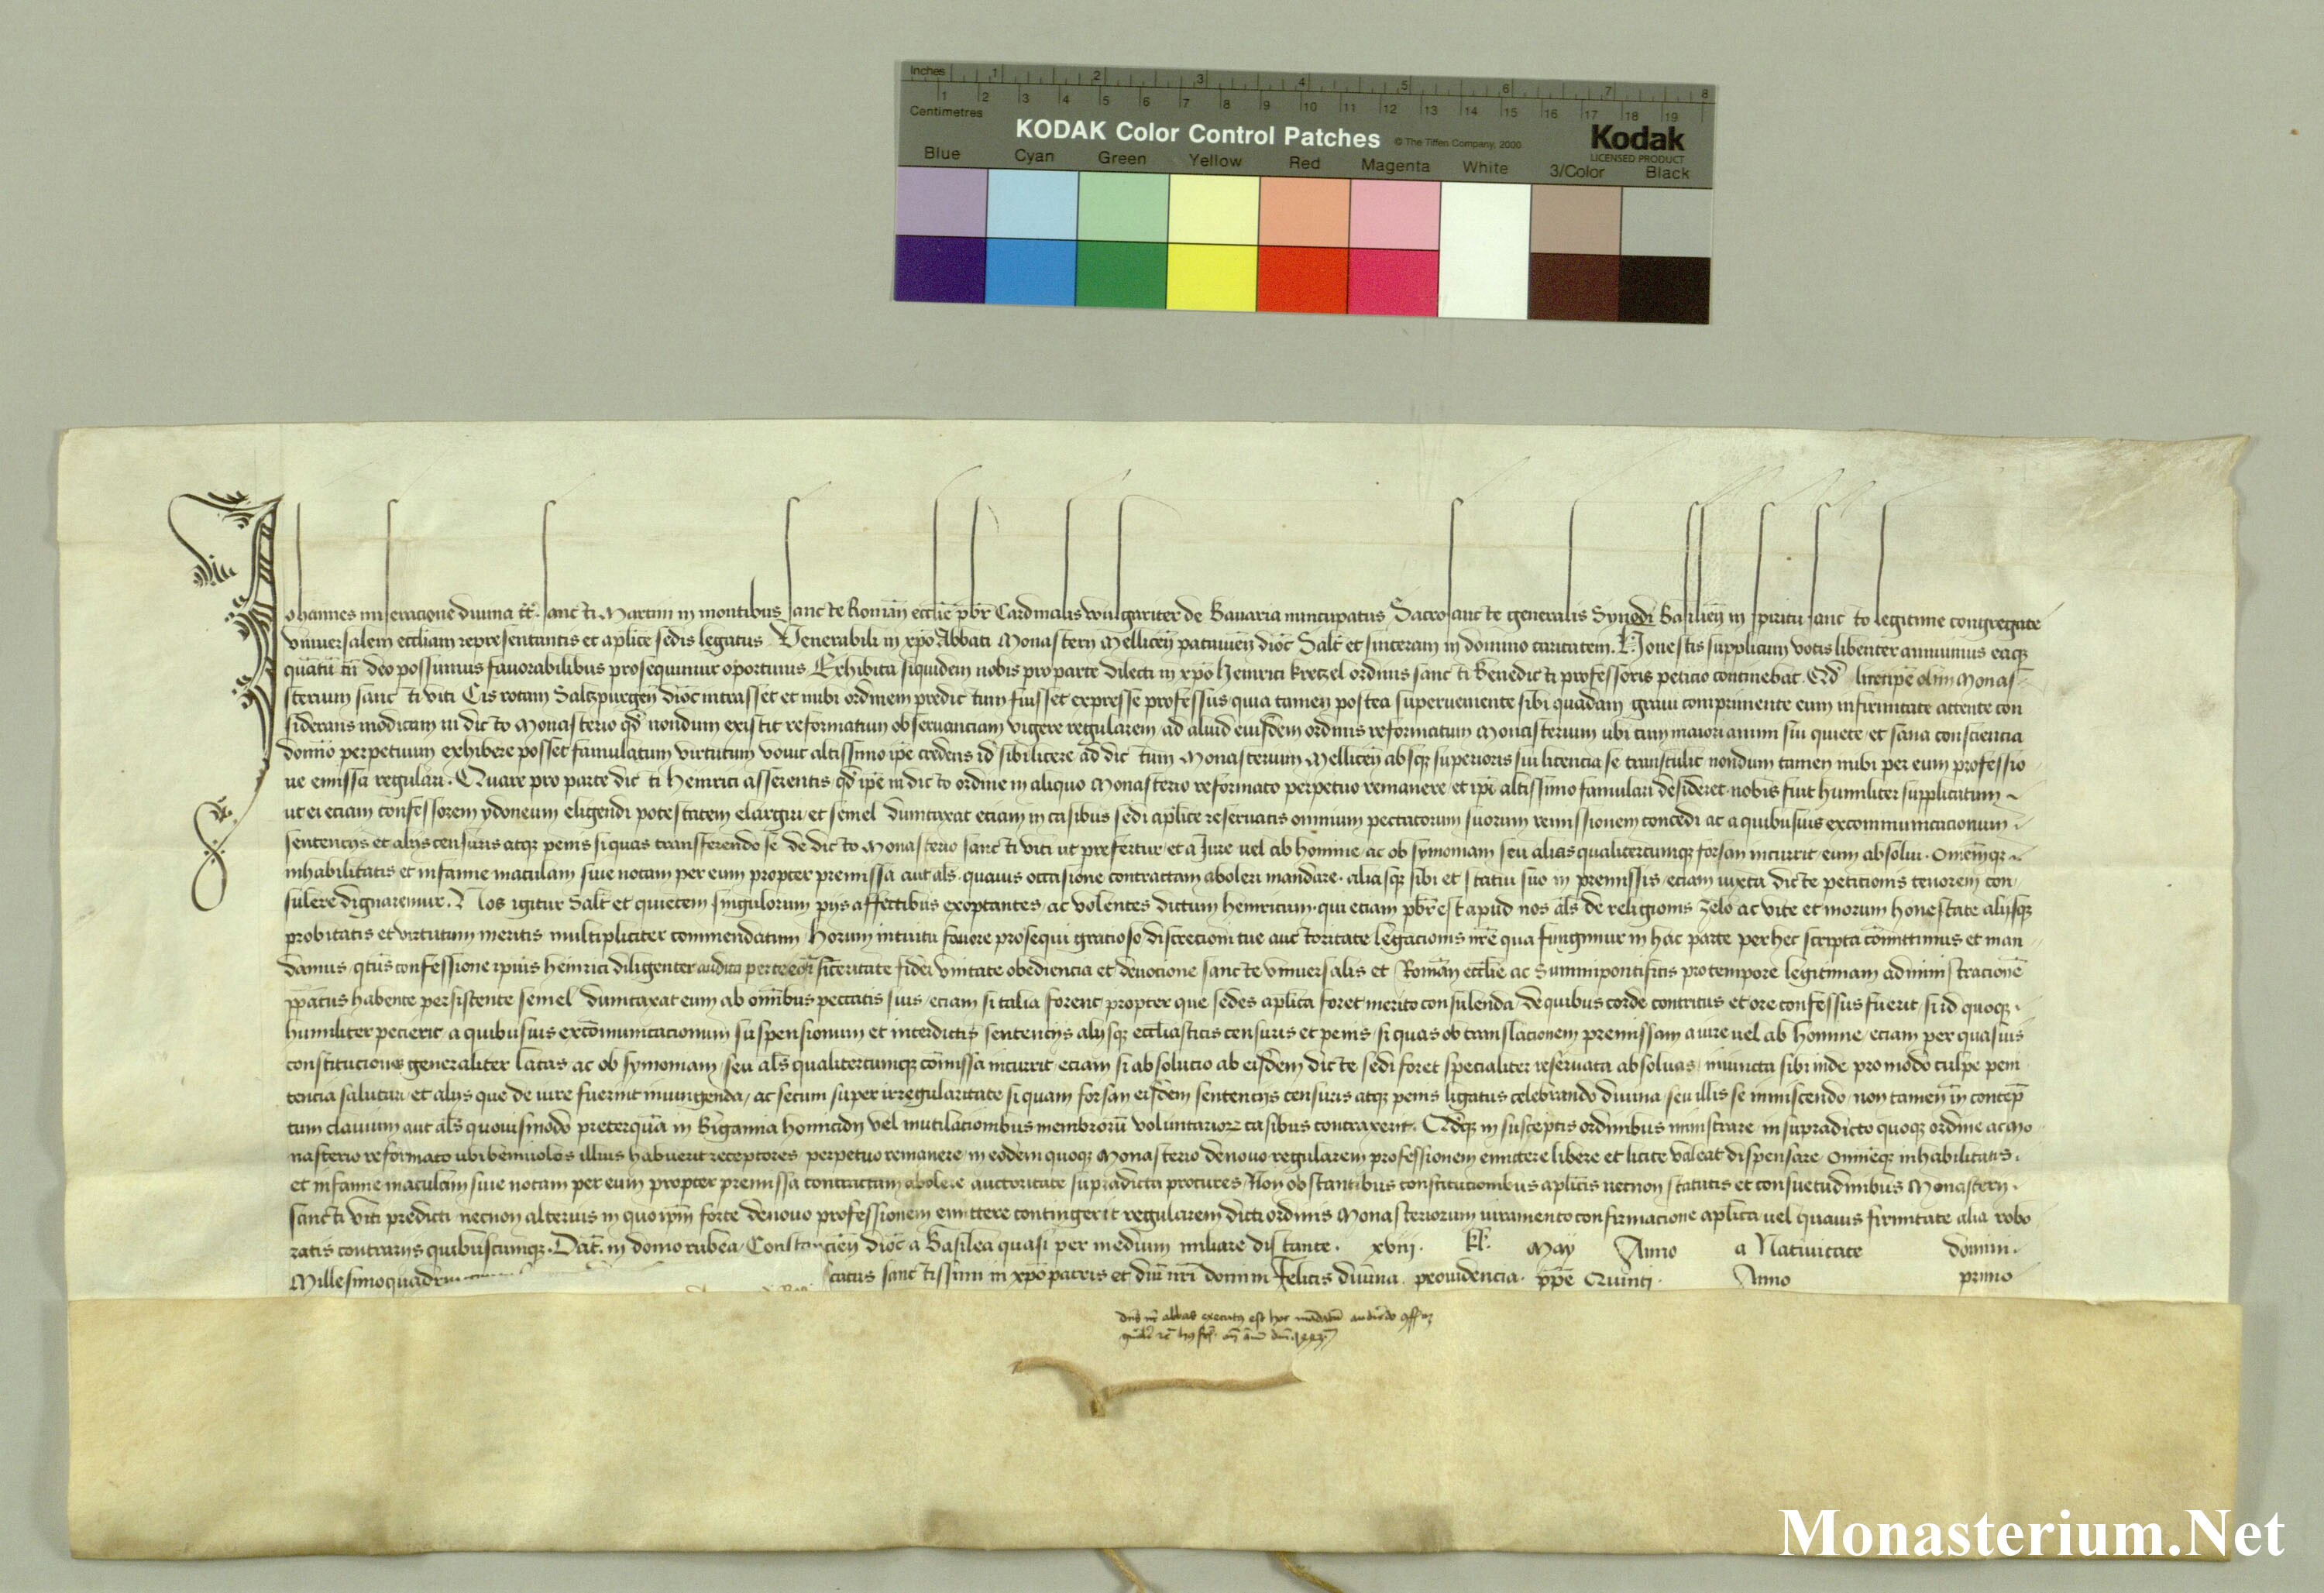 Inches 1 2 3 4 5 6 7 8
1 2 3 4 5 6 7 8 9 10 11 12 13 14 15 16 17 18 19
Centimetres
KODAK Color Control Patches © The Tiffen Company, 2000 Kodak
LICENSED PRODUCT
Blue Cyan Green Yellow Red Magenta White 3/Color Black
Johannes miseracione divina tt̄. sancti Martini in montibus sancte Roman̄ ecclīe pb̄r Cardinalis wulgariter de Bavaria nuncupatus Sacrosancte generalis Synodi Basilien̄ in spiritu sancto legitime congregate
universalem eccliam representantis et aplice sedis legatus Venerabili in xp̄o Abbati Monasterij Mellicen̄ patavien̄ dioc̄ Salt̄ et sinceram in domino caritatem. Honestis supplicum votis libenter annuimus eaqꝫ
quātū cū deo possumus favorabilibus prosequimur oportunis Exhibita siquidem nobis pro parte dilecti in xp̄o Heinrici kretzel ordinis sancti Benedicti professoris peticio continebat. Qd̄ licet ip̄e olim Monas
sterium sancti viti Cis rotam Saltzpurgen̄ dioc̄ intrasset et inibi ordinem predictum fuisset expresse professus quia tamen postea superveniente sibi quadam gravi comprimente eum infirmitate attente con
siderans modicam in dicto Monasterio qd̄ nondum existit reformatum observanciam vigere regularem ad aliud eiusdem ordinis reformatum Monasterium ubi cum maiori animi sui quiete et sana consciencia
domino perpetuum exhibere posset famulatum virtutum vovit altissimo ip̄e credens id sibi licere ad dictum Monasterium Mellicen̄ absqꝫ superioris sui licencia se transtulit nondum tamen inibi per eum professio
ne emissa regulari. Quare pro parte dicti Heinrici asserentis qd̄ ip̄e in dicto ordine in aliquo Monasterio reformato perpetuo remanere et ip̄i altissimo famulari desideret nobis fuit humiliter supplicatum
ut ei eciam confessorem ydoneum eligendi potestatem elargiri et semel dumtaxat eciam in casibus sedi aplice reservatis omnium peccatorum suorum remissionem concedi ac a quibusvis excommunicacionum
sentencijs et alijs censuris atqꝫ penis si quas transferendo se de dicto Monasterio sancti viti ut prefertur et a Iure vel ab homine ac ob symoniam seu alias qualitercumqꝫ forsan incurrit eum absolvi. Omēmqꝫ
inhabilitatis et infamie maculam sive notam per eum propter premissa aut als̄ quavis occasione contractam aboleri mandare. aliasqꝫ sibi et statui suo in premissis eciam iuxta dicte peticionis tenorem con
sulere dignaremur. Nos igitur Salt̄ et quietem singulorum pijs affectibus exoptantes ac volentes dictum heinricum qui eciam pb̄r est apud nos als̄ de religionis zelo ac vite et morum honestate alijsqꝫ
probitatis et virtutum meritis multipliciter commendatum horum intuitu favore prosequi gracioso discrecioni tue auctoritate legacionis nr̄e qua fungimur in hac parte per hec scripta cōmittimus et man
damus qtūs confessione ip̄ius heinrici diligenter audita per te sinceritate fidei unitate obediencia et devocione sancte universalis et Roman̄ ecclīe ac Summi pontificis pro tempore legitimam administracionē
pp̄atus habente persistente semel dumtaxat eum ab om̄ibus peccatis suis eciam si talia forent propter que sedes aplica foret merito consulenda de quibus corde contritus et ore confessus fuerit si id quoqꝫ
humiliter pecierit a quibusvis excōmunicacionum suspensionum et interdictis sentencijs alijsqꝫ ecclīasticis censuris et penis si quas ob translacionem premissam a iure vel ab homine eciam per quasvis
constituciones generaliter latas ac ob symoniam seu als̄ qualitercumqꝫ cōmissa incurrit eciam si absolucio ab eisdem dicte sedi foret specialiter reservata absolvas iniuncta sibi inde pro modo culpe peni
tencia salutari et alijs que de iure fuerint iniungenda ac secum super irregularitate si quam forsan eisdem sentencijs censuris atqꝫ penis ligatus celebrando divina seu illis se inmiscendo non tamen in contēp
tum clavium aut als̄ quovismodo preterquā in Bigamia homicidij vel mutilacionibus membrorū voluntariorꝫ casibus contraxerit. Qd̄qꝫ in susceptis ordinibus ministrare in supradicto quoqꝫ ordine ac mo
nasterio reformato ubi benivolos illius habuerit receptores perpetuo remanere in eodem quoqꝫ Monasterio denovo regularem professionem emittere libere et licite valeat dispensare Omnēqꝫ inhabilitatis
et infamie maculam sive notam per eum propter premissa contractam abolere auctoritate supradicta procures Non obstantibus constitucionibus aplicis necnon statutis et consuetudinibus Monasterij
sancti viti predicti necnon alterius in quo ip̄m forte denovo professionem emittere contingerit regularem dicti ordinis Monasteriorum iuramento confirmacione aplica vel quavis firmitate alia robo
ratis contrarijs quibuscumqꝫ. Dat̄. in domo rubea Constancien̄ dioc̄ a Basilea quasi per medium miliare distante. xviij. kl̄. Maij Anno a Nativitate domini
Millesimoquadrin catus sanctissimi in xp̄o patris et dn̄i nr̄i domini Felicis divina providencia pp̄e Quinti. Anno primo
dn̄s nr̄ abbas executus est hoc mādatū
Monasterium.Net